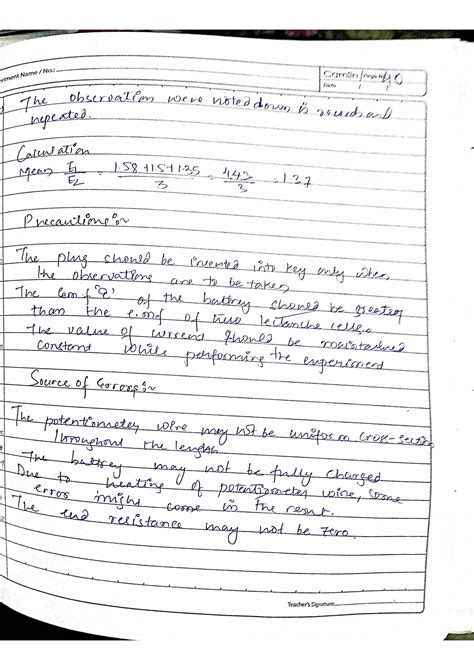 eriment Name / No.:
Camlin Page 40
Date / /
The observation were noted down & records and
repeated.
Calculation
Mean E1/E2 = 1.58+1.5+1.35/3 = 4.43/3 = 1.37
Precautions :-
The plug should be inverted into key only when,
the observations are to be taken,
The Emf 'E' of the battrey should be greater
than the e.mf of two leclanche cells.
The value of current should be maintained
constant while performing the experiment
Source of Errors :-
The potentiometer wire may not be uniform cross-section
throughout the length
The battrey may not be fully charged
Due to heating of potentiometer wire, some
error might come in the result.
The end resistance may not be zero.
Teacher's Signature: